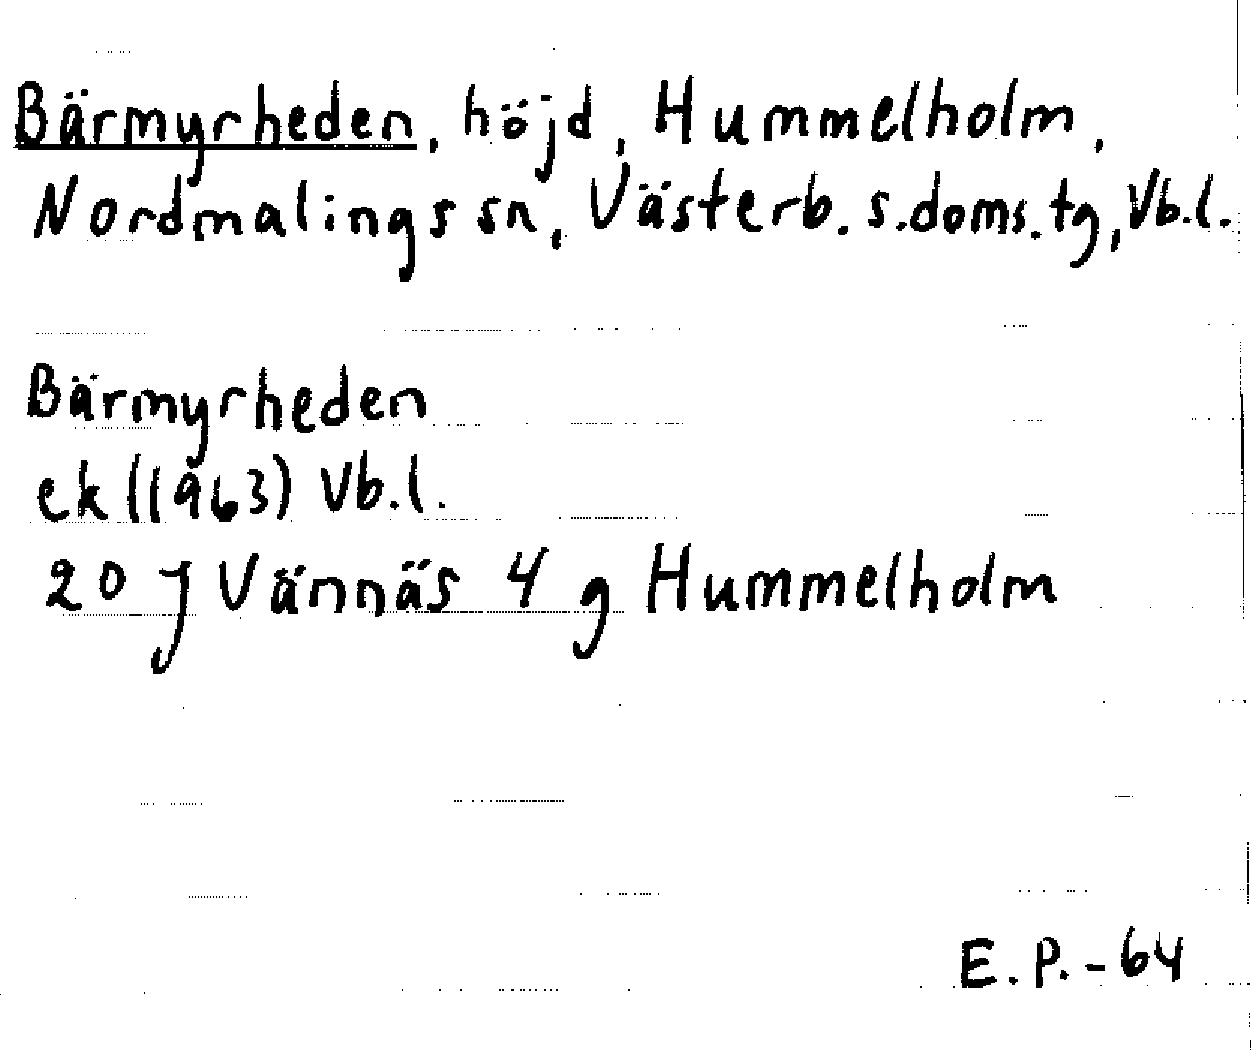 Bärmyrheden, höjd, Hummelholm,
Nordmalings sn, Västerb. s.doms.tg, Vb.l.
Bärmyrheden
ek (1963) Vb.l.
20 J Vännäs 4 g Hummelholm
E.P.-64